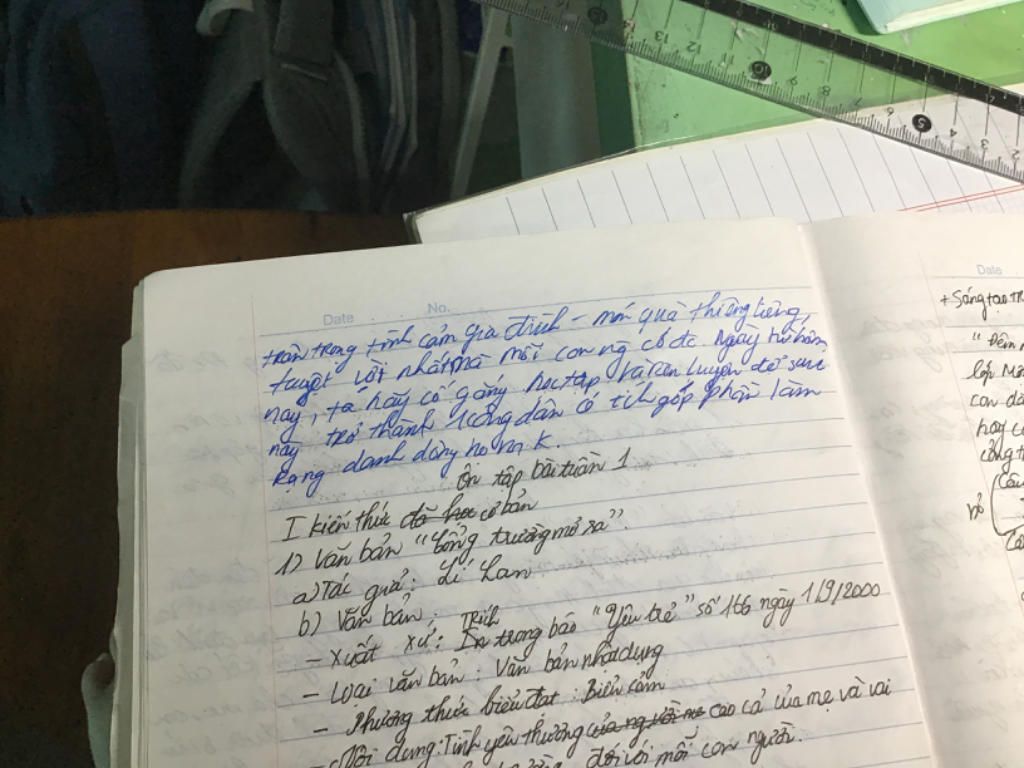 Date No.
trân trọng tình cảm gia đình - món quà thiêng liêng,
tuyệt vời nhất mà mỗi con ng có đc. Ngày từ hôm
nay, ta hãy cố gắng học tập và rèn luyện để sau
này trở thành 1 công dân có ích góp phần làm
rạng danh dòng họ mk.
Ôn tập bài tuần 1
I kiến thức đã học cơ bản
1) Văn bản "Cổng trường mở ra".
a) Tác giả: Lí Lan
b) Văn bản:
- Xuất xứ: Trích In trong báo "Yêu trẻ" số 166 ngày 1/9/2000
- Loại văn bản: Văn bản nhật dụng
- Phương thức biểu đạt: Biểu cảm
- Nội dung: Tình yêu thương của người mẹ cao cả của mẹ và vai
đối với mỗi con người.
Date
+ Sáng tạo
"Đêm
lớp
con
hay
cổng
5 4 2
13 12 11 9 8 7